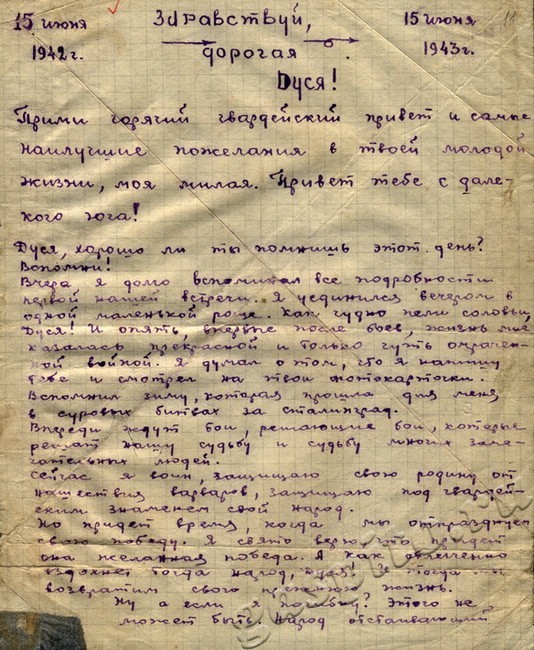 15 июня 1942 г.
Здравствуй,
дорогая
Дуся!
15 июня 1943 г.
11
Прими горячий гвардейский привет и самые
наилучшие пожелания в твоей молодой
жизни, моя милая. Привет тебе с дале-
кого юга!
Дуся, хорошо ли ты помнишь этот день?
Вспомни!
Вчера я долго вспоминал все подробности
первой нашей встречи. Я уединился вечером в
одной маленькой роще. Как чудно пели соловьи,
Дуся! И опять, впервые после боев, жизнь мне
казалась прекрасной и только чуть омрачен-
ной войной. Я думал о том, что я напишу
тебе и смотрел на твои фотокарточки.
Вспомнил зиму, которая прошла для меня
в суровых битвах за Сталинград.
Впереди ждут бои, решающие бои, которые
решат нашу судьбу и судьбу многих заме-
чательных людей.
Сейчас я воин, защищаю свою родину от
нашествия варваров, защищаю под гвардей-
ским знаменем свой народ.
Но придет время, когда мы отпразднуем
свою победу. Я свято верю, что придет
она желанная победа. А как облегченно
вздохнет тогда народ, Дуся! И тогда мы
возвратим свою прежнюю жизнь.
Ну а если я погибну? Этого не
может быть. Народ отстаивающий